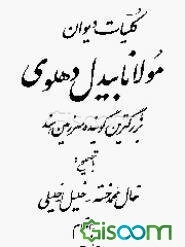 کلیات دیوان
مولانا بیدل دهلوی
بزرگترین گوینده سرزمین هند
بتصحیح
خال محمد خسته - خلیل الله خلیلی
Gisoom
.com